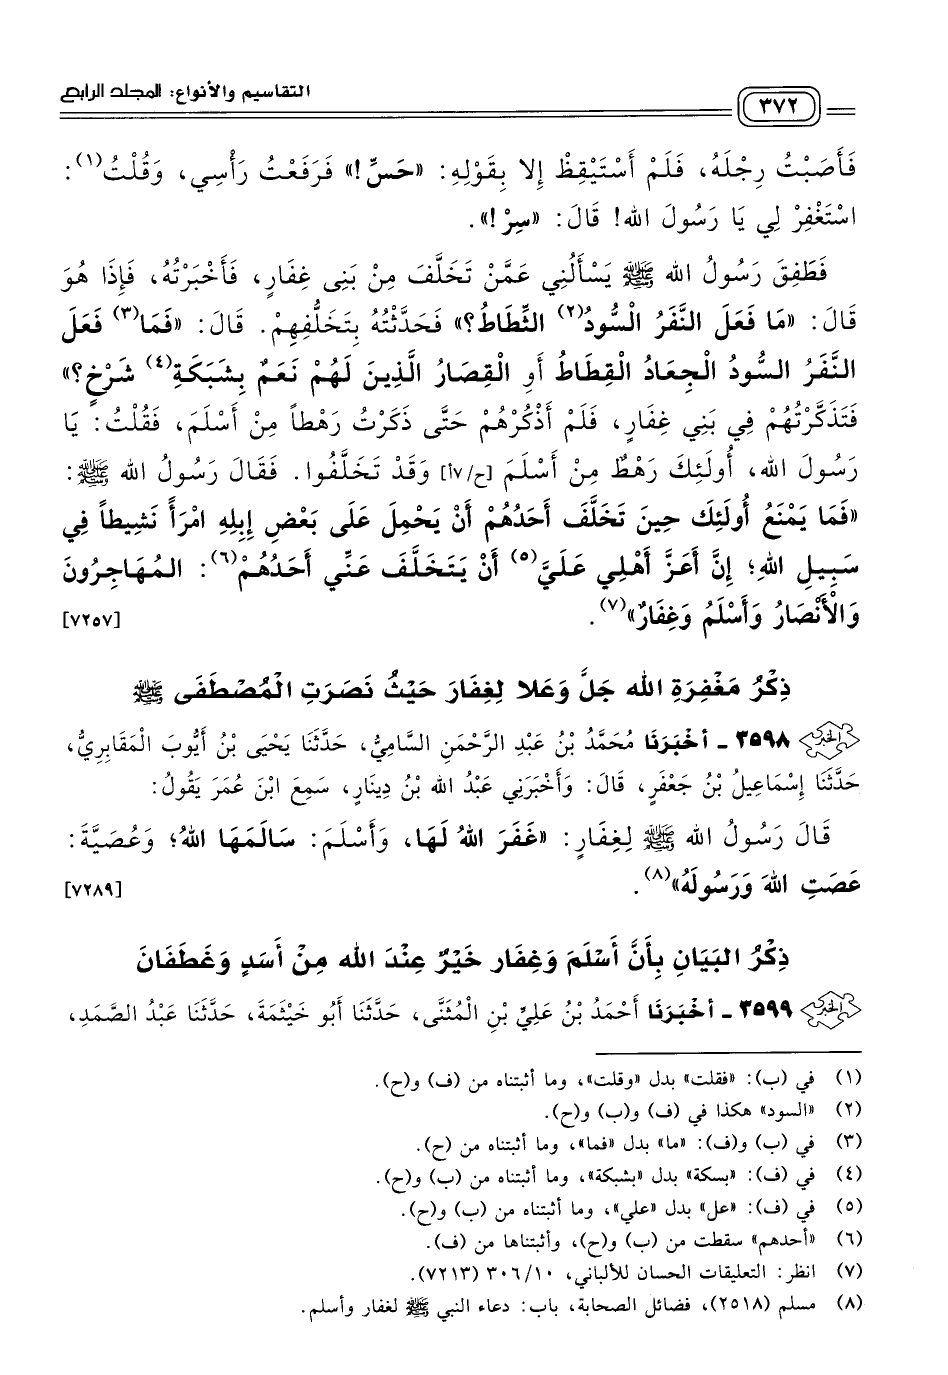 التقاسيم والأنواع: المجلد الرابع
٣٧٢
فَأَصَبْتُ رِجْلَهُ، فَلَمْ أَسْتَيْقِظْ إِلا بِقَوْلِهِ: «حَسِّ!» فَرَفَعْتُ رَأْسِي، وَقُلْتُ(١):
اسْتَغْفِرْ لِي يَا رَسُولَ الله! قَالَ: «سِرْ!».
فَطَفِقَ رَسُولُ الله ﷺ يَسْأَلُنِي عَمَّنْ تَخَلَّفَ مِنْ بَنِي غِفَارٍ، فَأَخْبَرْتُهُ، فَإِذَا هُوَ
قَالَ: «مَا فَعَلَ النَّفَرُ السُّودُ(٢) الثِّطَاطُ؟» فَحَدَّثْتُهُ بِتَخَلُّفِهِمْ. قَالَ: «فَمَا(٣) فَعَلَ
النَّفَرُ السُّودُ الْجِعَادُ الْقِطَاطُ أَوِ الْقِصَارُ الَّذِينَ لَهُمْ نَعَمٌ بِشَبَكَةِ(٤) شَرْخٍ؟»
فَتَذَكَّرْتُهُمْ فِي بَنِي غِفَارٍ، فَلَمْ أَذْكُرْهُمْ حَتَّى ذَكَرْتُ رَهْطاً مِنْ أَسْلَمَ، فَقُلْتُ: يَا
رَسُولَ الله، أُولَئِكَ رَهْطٌ مِنْ أَسْلَمَ [ح/٧أ] وَقَدْ تَخَلَّفُوا. فَقَالَ رَسُولُ الله ﷺ:
«فَمَا يَمْنَعُ أُولَئِكَ حِينَ تَخَلَّفَ أَحَدُهُمْ أَنْ يَحْمِلَ عَلَى بَعْضِ إِبِلِهِ امْرَأً نَشِيطاً فِي
سَبِيلِ اللهِ؛ إِنَّ أَعَزَّ أَهْلِي عَلَيَّ(٥) أَنْ يَتَخَلَّفَ عَنِّي أَحَدُهُمْ(٦): المُهَاجِرُونَ
وَالْأَنْصَارُ وَأَسْلَمُ وَغِفَارٌ»(٧). [٧٢٥٧]
ذِكْرُ مَغْفِرَةِ الله جَلَّ وَعَلا لِغِفَارَ حَيْثُ نَصَرَتِ الْمُصْطَفَى ﷺ
٣٥٩٨ ـ أخْبَرَنَا مُحَمَّدُ بْنُ عَبْدِ الرَّحْمَنِ السَّامِيُّ، حَدَّثَنَا يَحْيَى بْنُ أَيُّوبَ الْمَقَابِرِيُّ،
حَدَّثَنَا إِسْمَاعِيلُ بْنُ جَعْفَرٍ، قَالَ: وَأَخْبَرَنِي عَبْدُ الله بْنُ دِينَارٍ، سَمِعَ ابْنَ عُمَرَ يَقُولُ:
قَالَ رَسُولُ الله ﷺ لِغِفَارٍ: «غَفَرَ اللهُ لَهَا، وَأَسْلَمَ: سَالَمَهَا اللهُ؛ وَعُصَيَّةَ:
عَصَتِ اللهَ وَرَسُولَهُ»(٨). [٧٢٨٩]
ذِكْرُ البَيَانِ بِأَنَّ أَسْلَمَ وَغِفَار خَيْرٌ عِنْدَ الله مِنْ أَسَدٍ وَغَطَفَانَ
٣٥٩٩ ـ أخْبَرَنَا أَحْمَدُ بْنُ عَلِيِّ بْنِ الْمُثَنَّى، حَدَّثَنَا أَبُو خَيْثَمَةَ، حَدَّثَنَا عَبْدُ الصَّمَدِ،
(١) في (ب): «فقلت» بدل «وقلت»، وما أثبتناه من (ف) و(ح).
(٢) «السود» هكذا في (ف) و(ب) و(ح).
(٣) في (ب) و(ف): «ما» بدل «فما»، وما أثبتناه من (ح).
(٤) في (ف): «بسكة» بدل «بشبكة»، وما أثبتناه من (ب) و(ح).
(٥) في (ف): «عل» بدل «علي»، وما أثبتناه من (ب) و(ح).
(٦) «أحدهم» سقطت من (ب) و(ح)، وأثبتناها من (ف).
(٧) انظر: التعليقات الحسان للألباني، ١٠/ ٣٠٦ (٧٢١٣).
(٨) مسلم (٢٥١٨)، فضائل الصحابة، باب: دعاء النبي ﷺ لغفار وأسلم.